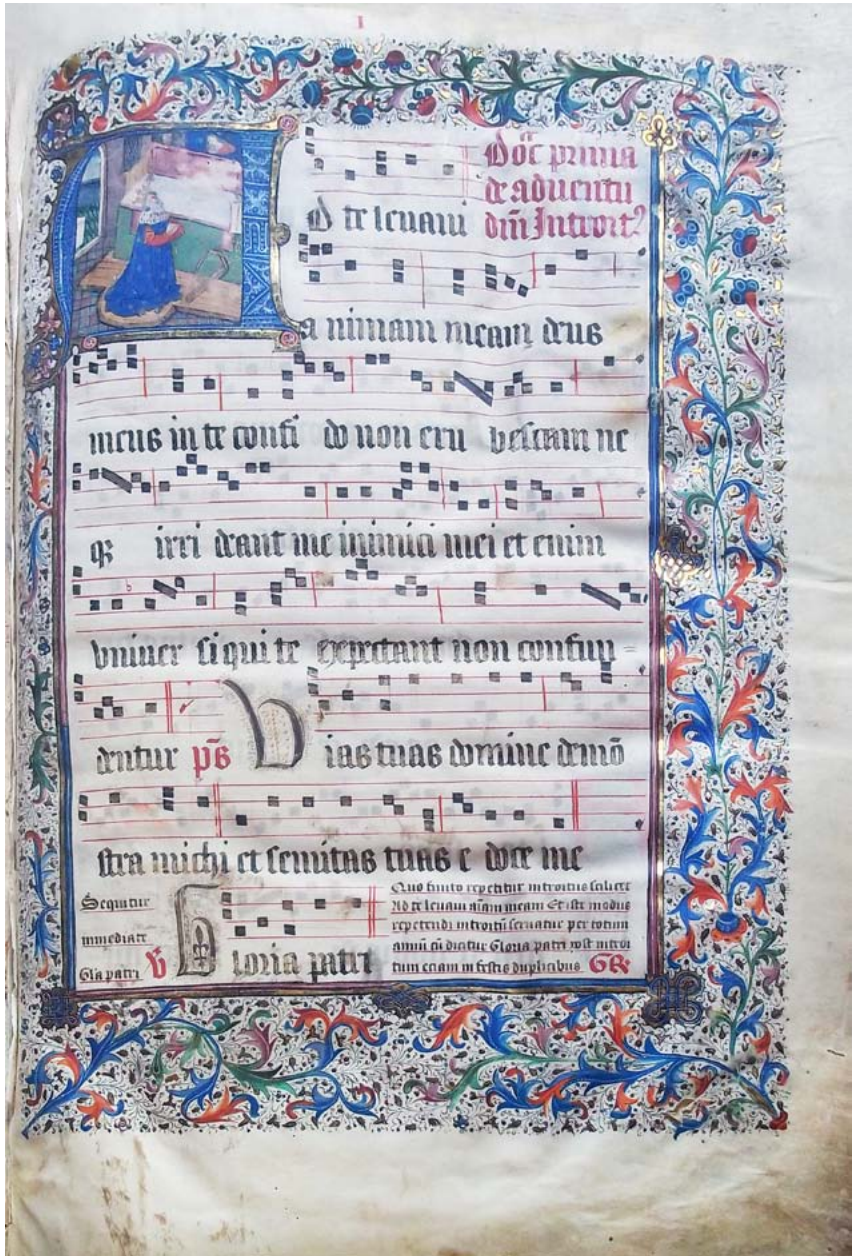 I
Doc prima
de adventu
dni Introit
D te levavi
a nimam meam deus
meus in te confi do non eru bescam ne
qz irri deant me inimici mei et enim
vniver si qui te expectant non confun=
dentur ps V ias tuas domine demõ
stra michi et semitas tuas e doce me
Sequitur
immediate
Gla patri V G loria patri
Quo finito repetitur introitus scilicet
Ad te levavi aĩam meam Et iste modus
repetendi introitũ servatur per totum
annũ cũ dicitur Gloria patri post introi
tum etiam in festis duplicibus GR